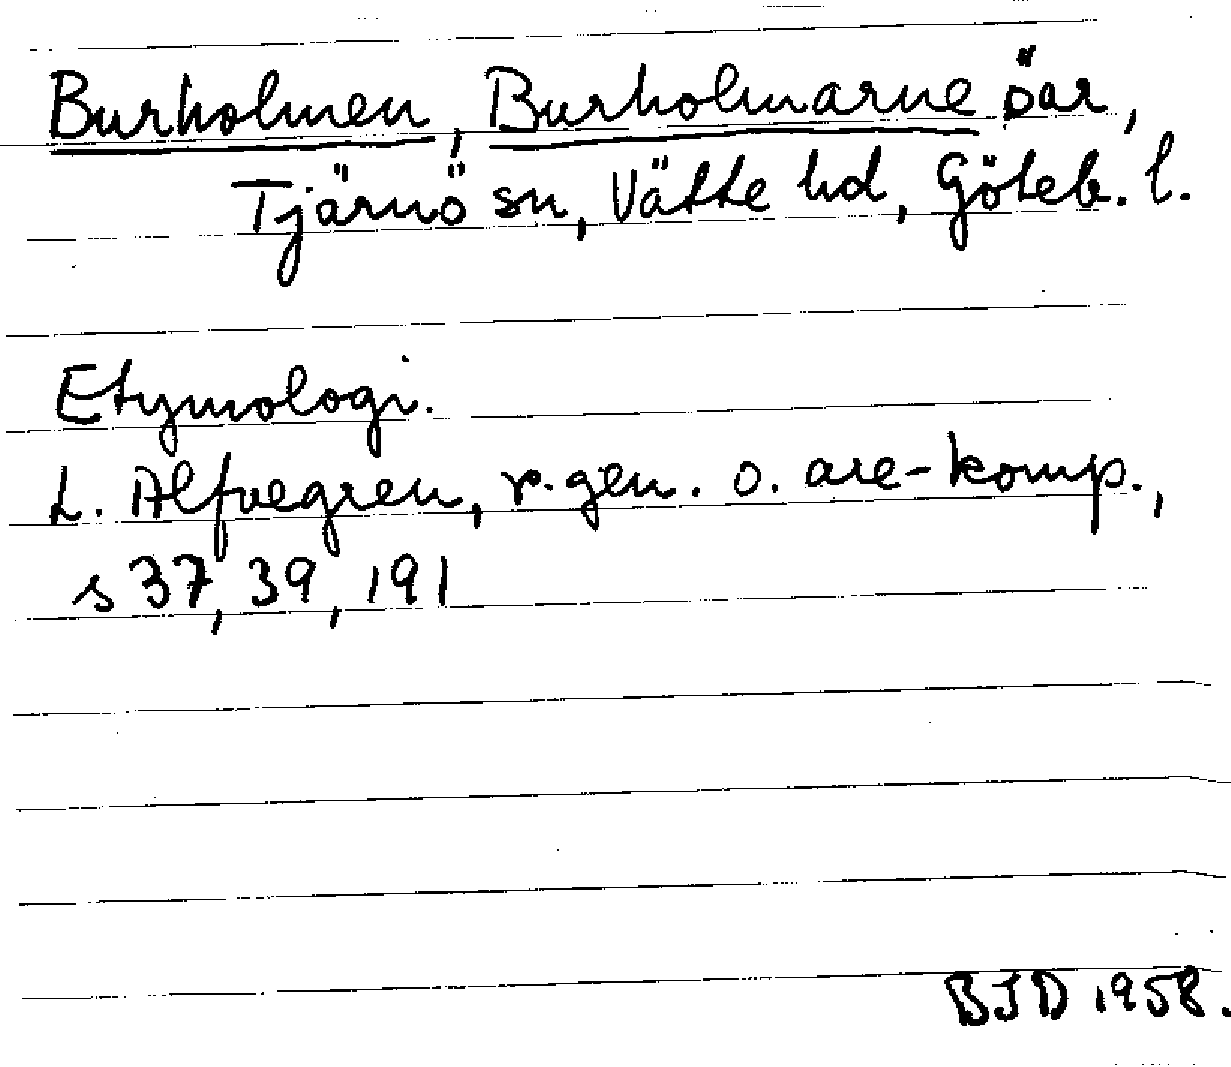 Burholmen, Burholmarne öar,
Tjärnö sn, Vätte hd, Göteb. l.
Etymologi.
L. Alfvegren, r-gen. o. are-komp.,
s 37, 39, 191
BJD 1958.